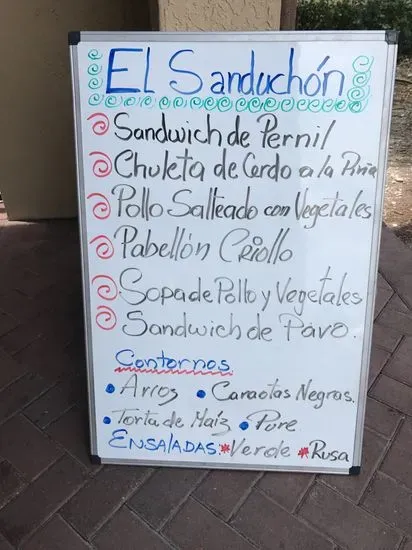 EL Sanduchón
Sandwich de Pernil
Chuleta de Cerdo a la Piña
Pollo Salteado con Vegetales
Pabellón Criollo
Sopa de Pollo y Vegetales
Sandwich de Pavo.
Contornos
Arroz Caraotas Negras.
Torta de Maíz Pure
ENSALADAS Verde Rusa